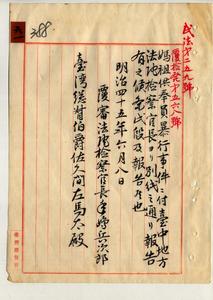 民法第二五九號
388
覆檢発第五六八號
媽祖供奉員暴行事件ニ付臺中地方
法院檢察官長ヨリ別紙之通リ報告
有之候條此段及報告候也
明治四十五年六月八日
覆審法院檢察官長手島兵次郎
臺灣總督伯爵佐久間左馬太殿